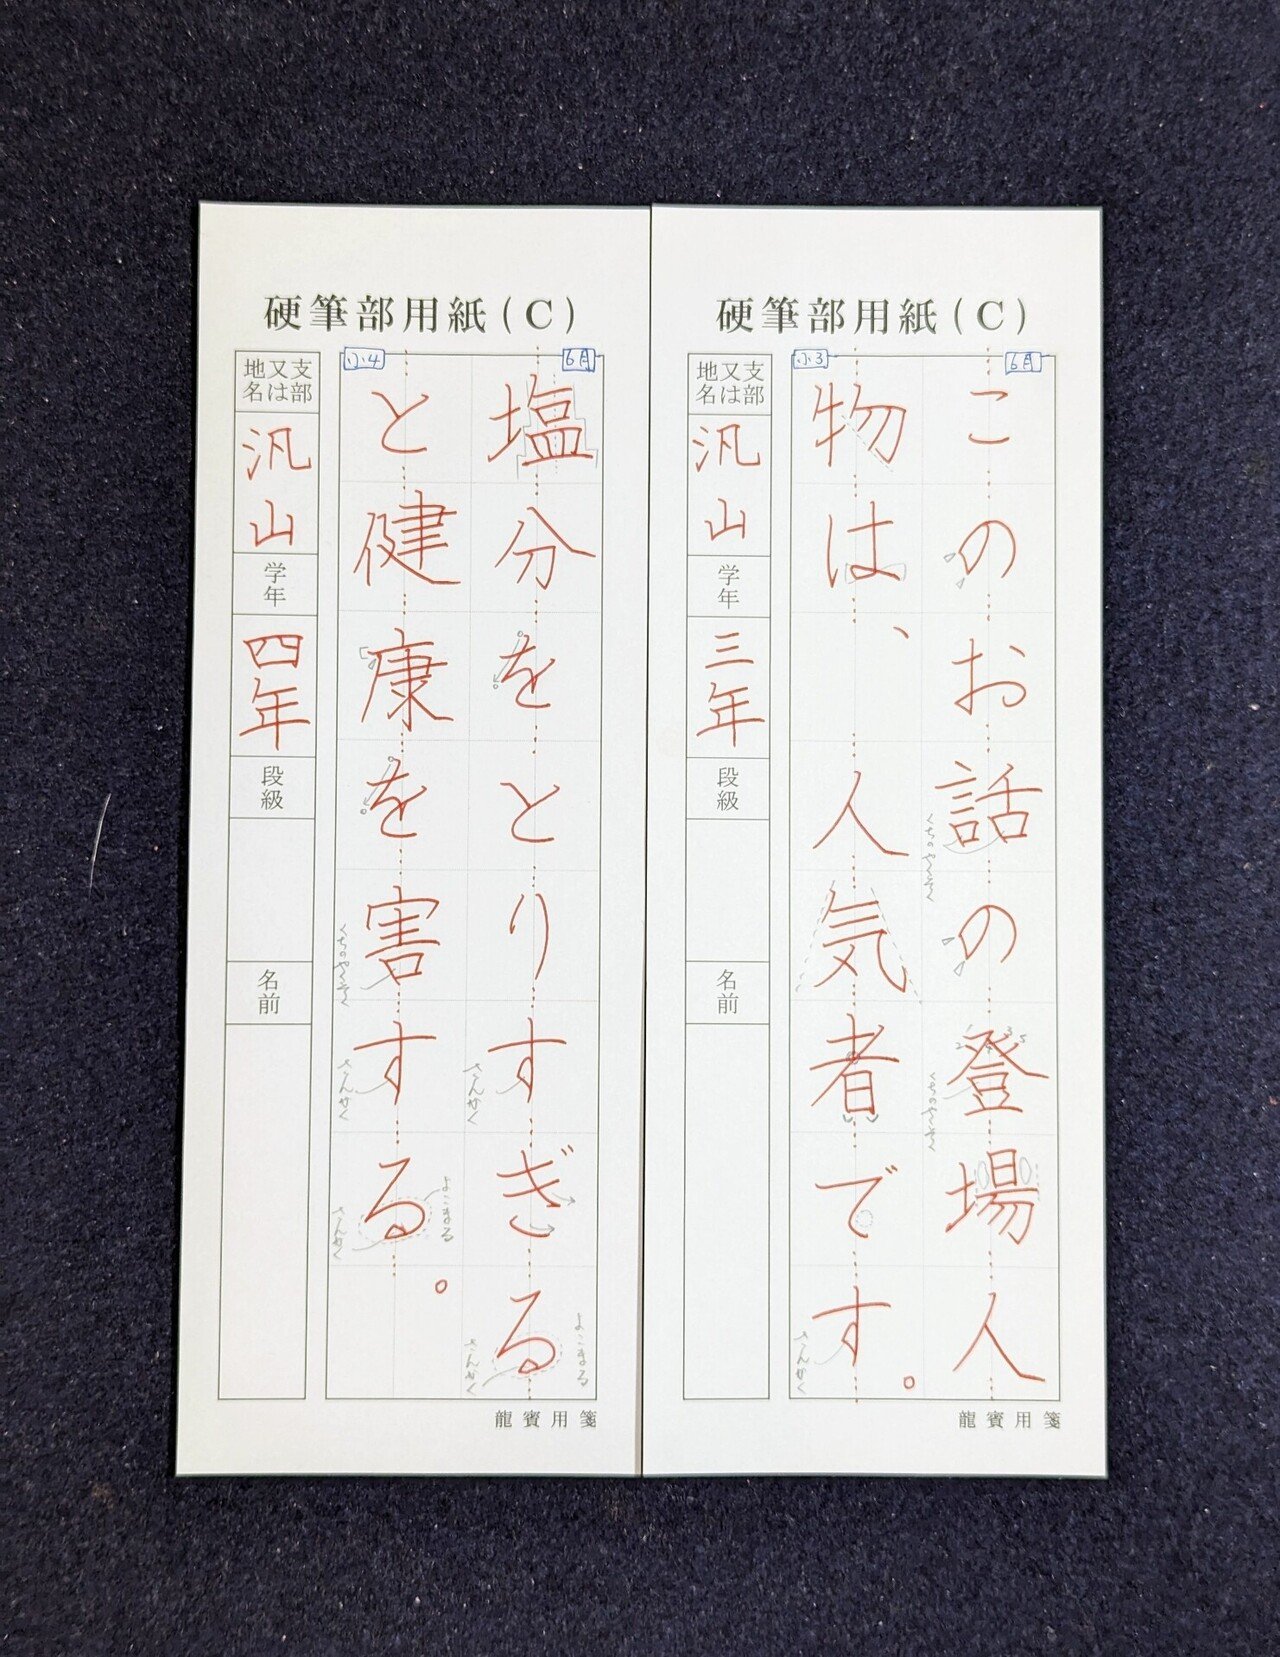 硬筆部用紙(C)
小3
6月
このお話の登場人
物は、人気者です。
くちのやくそく
くちのやくそく
さんかく
1
2
3
4
5
支部
又は
地名
汎山
学年
三年
段級
名前
龍賓用箋
硬筆部用紙(C)
小4
6月
塩分をとりすぎる
と健康を害する。
さんかく
よこまる
さんかく
くちのやくそく
さんかく
よこまる
さんかく
支部
又は
地名
汎山
学年
四年
段級
名前
龍賓用箋